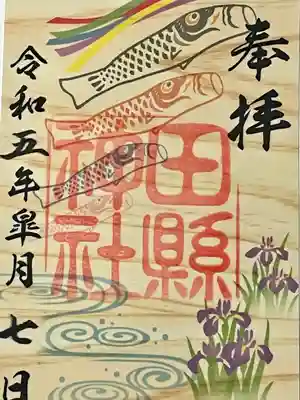 奉拝
田縣
神社
令和五年皐月七日